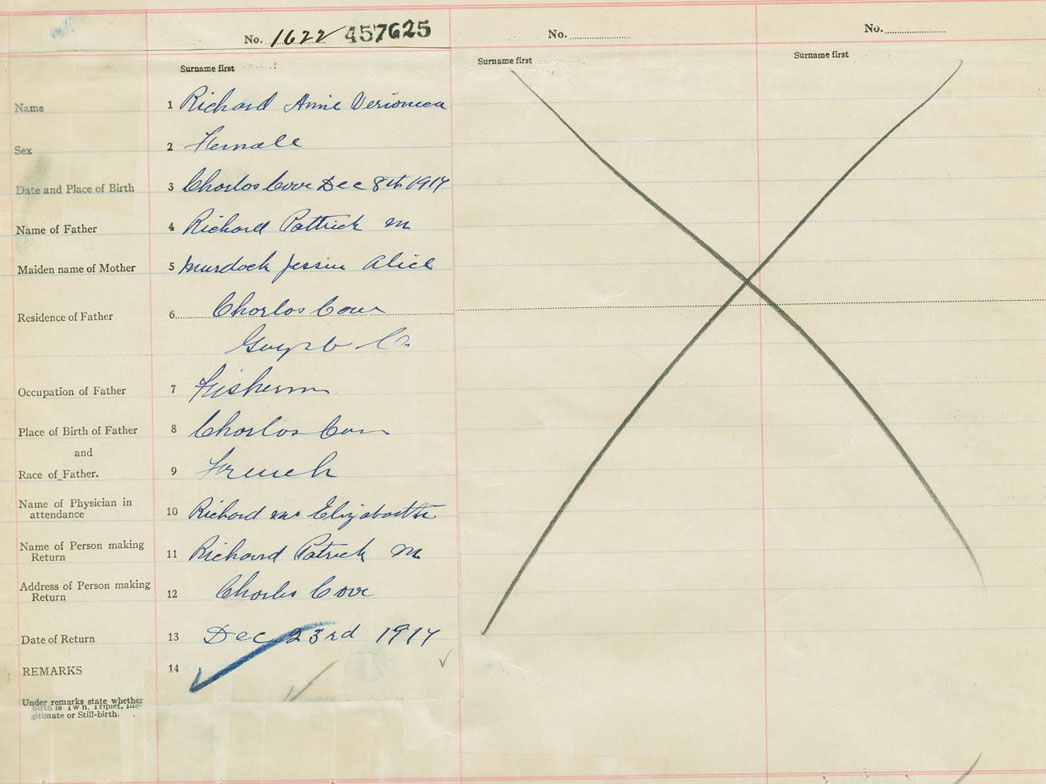 No. 1622 457625
No.
No.
Surname first
Surname first
Surname first
Name 1 Richard Annie Veronica
Sex 2 Female
Date and Place of Birth 3 Charlos Cove Dec 8th 1917
Name of Father 4 Richard Pattrick M
Maiden name of Mother 5 Murdock Jessie Alice
Residence of Father 6 Charlos Cove
Guysb Co
Occupation of Father 7 Fisherm
Place of Birth of Father 8 Charlos Cove
and
Race of Father. 9 French
Name of Physician in
attendance 10 Richard Elizabeth
Name of Person making
Return 11 Richard Patrick M
Address of Person making
Return 12 Charlos Cove
Date of Return 13 Dec 23rd 1917
REMARKS 14
Under remarks state whether
Birth is Twin, Triplet, Ille-
gitimate or Still-birth.